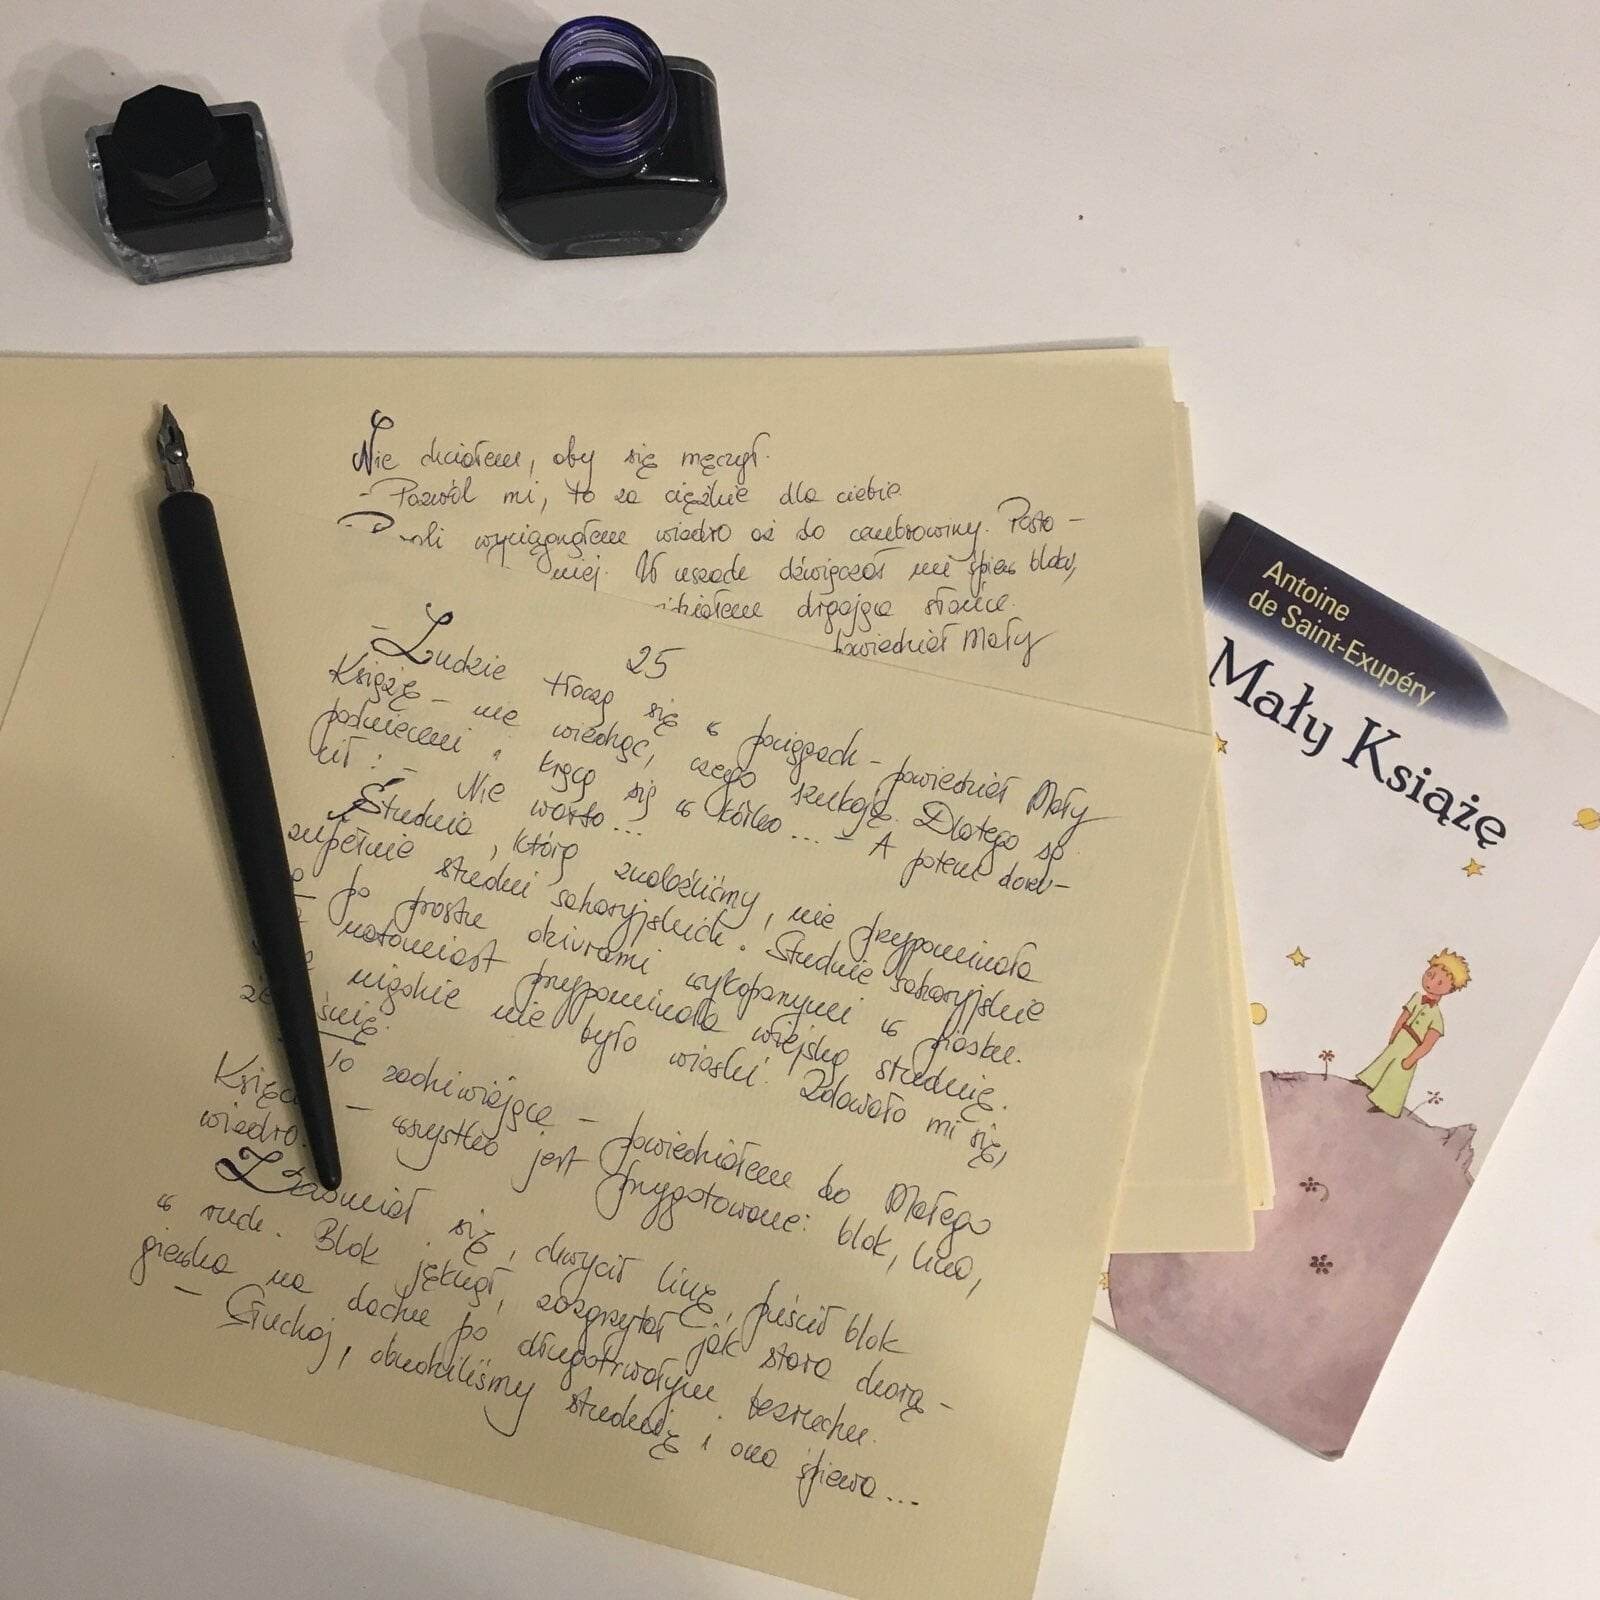 Nie chciałem, aby się męczył.
- Pozwól mi, to za ciężkie dla ciebie.
wyciągnąłem wiadro aż do cembrowiny. Posta-
niej. W uszach dźwięczał mi śpiew bloku,
drgające słońce.
powiedział Mały
25
- Ludzie tłoczą się w pociągach - powiedział Mały
Książę - nie wiedząc, czego szukają. Dlatego są
podnieceni i kręcą się w kółko... - A potem dorzu-
cił: - Nie warto...
Studnia, którą znaleźliśmy, nie przypominała
zupełnie studni saharyjskich. Studnie saharyjskie
po prostu dziurami wykopanymi w piasku.
natomiast przypominała wiejską studnię.
nigdzie nie było wioski. Zdawało mi się,
że śnię.
To zadziwiające - powiedziałem do Małego
Księcia - wszystko jest przygotowane: blok, lina,
wiadro.
Zaśmiał się, chwycił linę, puścił blok
w ruch. Blok jęknął, zazgrzytał jak stara chorą-
giewka na dachu po długotrwałym bezruchu.
- Słuchaj, obudziliśmy studnię i ona śpiewa...
Antoine
de Saint-Exupéry
Mały Książę